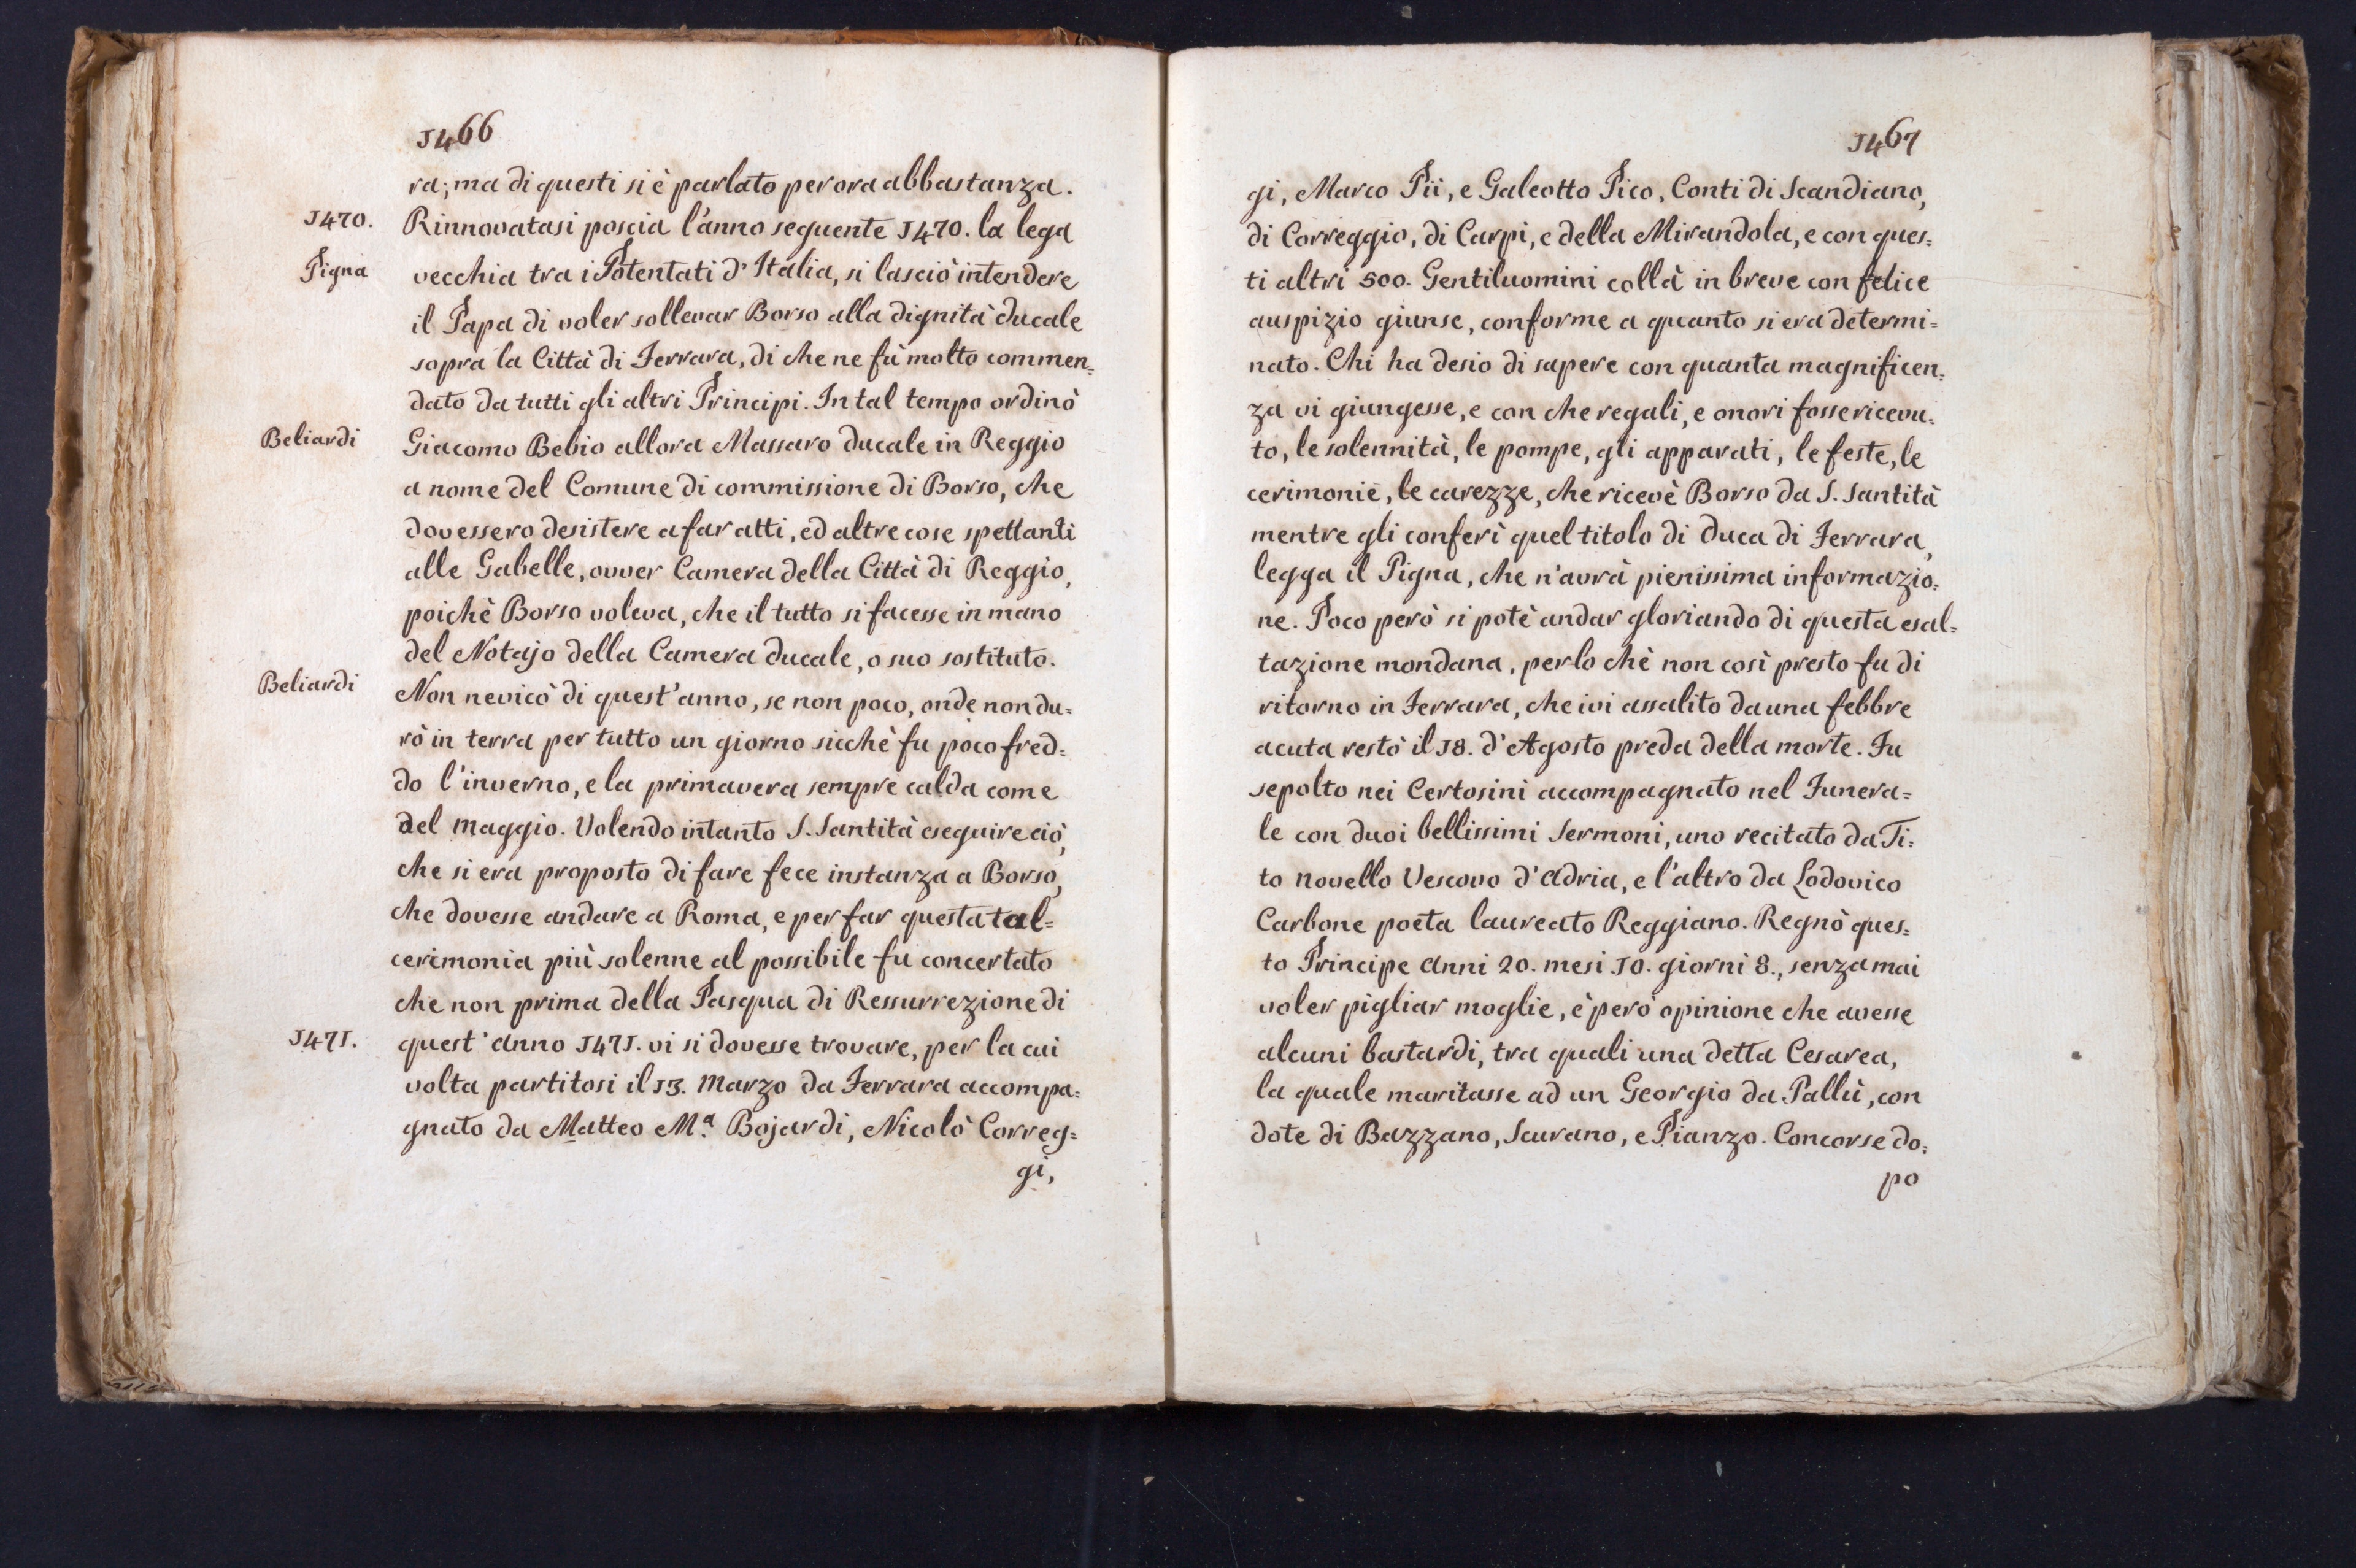 1466
ra; ma di questi si è parlato per ora abbastanza.
1470.
Rinnovatasi poscia l'anno seguente 1470. la lega
Pigna
vecchia tra i Potentati d'Italia, si lasciò intendere
il Papa di voler sollevar Borso alla dignità ducale
sopra la Città di Ferrara, di che ne fù molto commen=
dato da tutti gli altri Principi. In tal tempo ordinò
Beliardi
Giacomo Bebio allora Massaro ducale in Reggio
a nome del Comune di commissione di Borso, che
dovessero desistere a far atti, ed altre cose spettanti
alle Gabelle, ovver Camera della Città di Reggio,
poichè Borso voleva, che il tutto si facesse in mano
del Notajo della Camera ducale, o suo sostituto.
Beliardi
Non nevicò di quest'anno, se non poco, onde non du=
rò in terra per tutto un giorno sicchè fu poco fred=
do l'inverno, e la primavera sempre calda come
del Maggio. Volendo intanto S. Santità eseguire ciò,
che si era proposto di fare fece instanza a Borso,
che dovesse andare a Roma, e per far questa tal=
cerimonia più solenne al possibile fu concertato
che non prima della Pasqua di Ressurrezione di
1471.
quest'anno 1471. vi si dovesse trovare, per la cui
volta partitosi il 13. Marzo da Ferrara accompa=
gnato da Matteo M.ª Bojardi, Nicolò Correg=
gi,
1467
gi, Marco Pii, e Galeotto Pico, Conti di Scandiano,
di Correggio, di Carpi, e della Mirandola, e con ques=
ti altri 500. Gentiluomini collà in breve con felice
auspizio giunse, conforme a quanto si era determi=
nato. Chi ha desio di sapere con quanta magnificen=
za vi giungesse, e con che regali, e onori fosse ricevu=
to, le solennità, le pompe, gli apparati, le feste, le
cerimonie, le carezze, che ricevè Borso da S. Santità
mentre gli conferì quel titolo di Duca di Ferrara,
legga il Pigna, che n'avrà pienissima informazio=
ne. Poco però si potè andar gloriando di questa esal=
tazione mondana, perlo chè non così presto fu di
ritorno in Ferrara, che ivi assalito da una febbre
acuta restò il 18. d'Agosto preda della morte. Fu
sepolto nei Certosini accompagnato nel Funera=
le con duoi bellissimi Sermoni, uno recitato da Ti=
to Novello Vescovo d'Adria, e l'altro da Lodovico
Carbone poeta laureato Reggiano. Regnò ques=
to Principe Anni 20. mesi 10. giorni 8., senza mai
voler pigliar moglie, è però opinione che avesse
alcuni bastardi, tra quali una detta Cesarea,
la quale maritasse ad un Georgio da Pallù, con
dote di Bazzano, Scurano, e Pianzo. Concorse do=
po